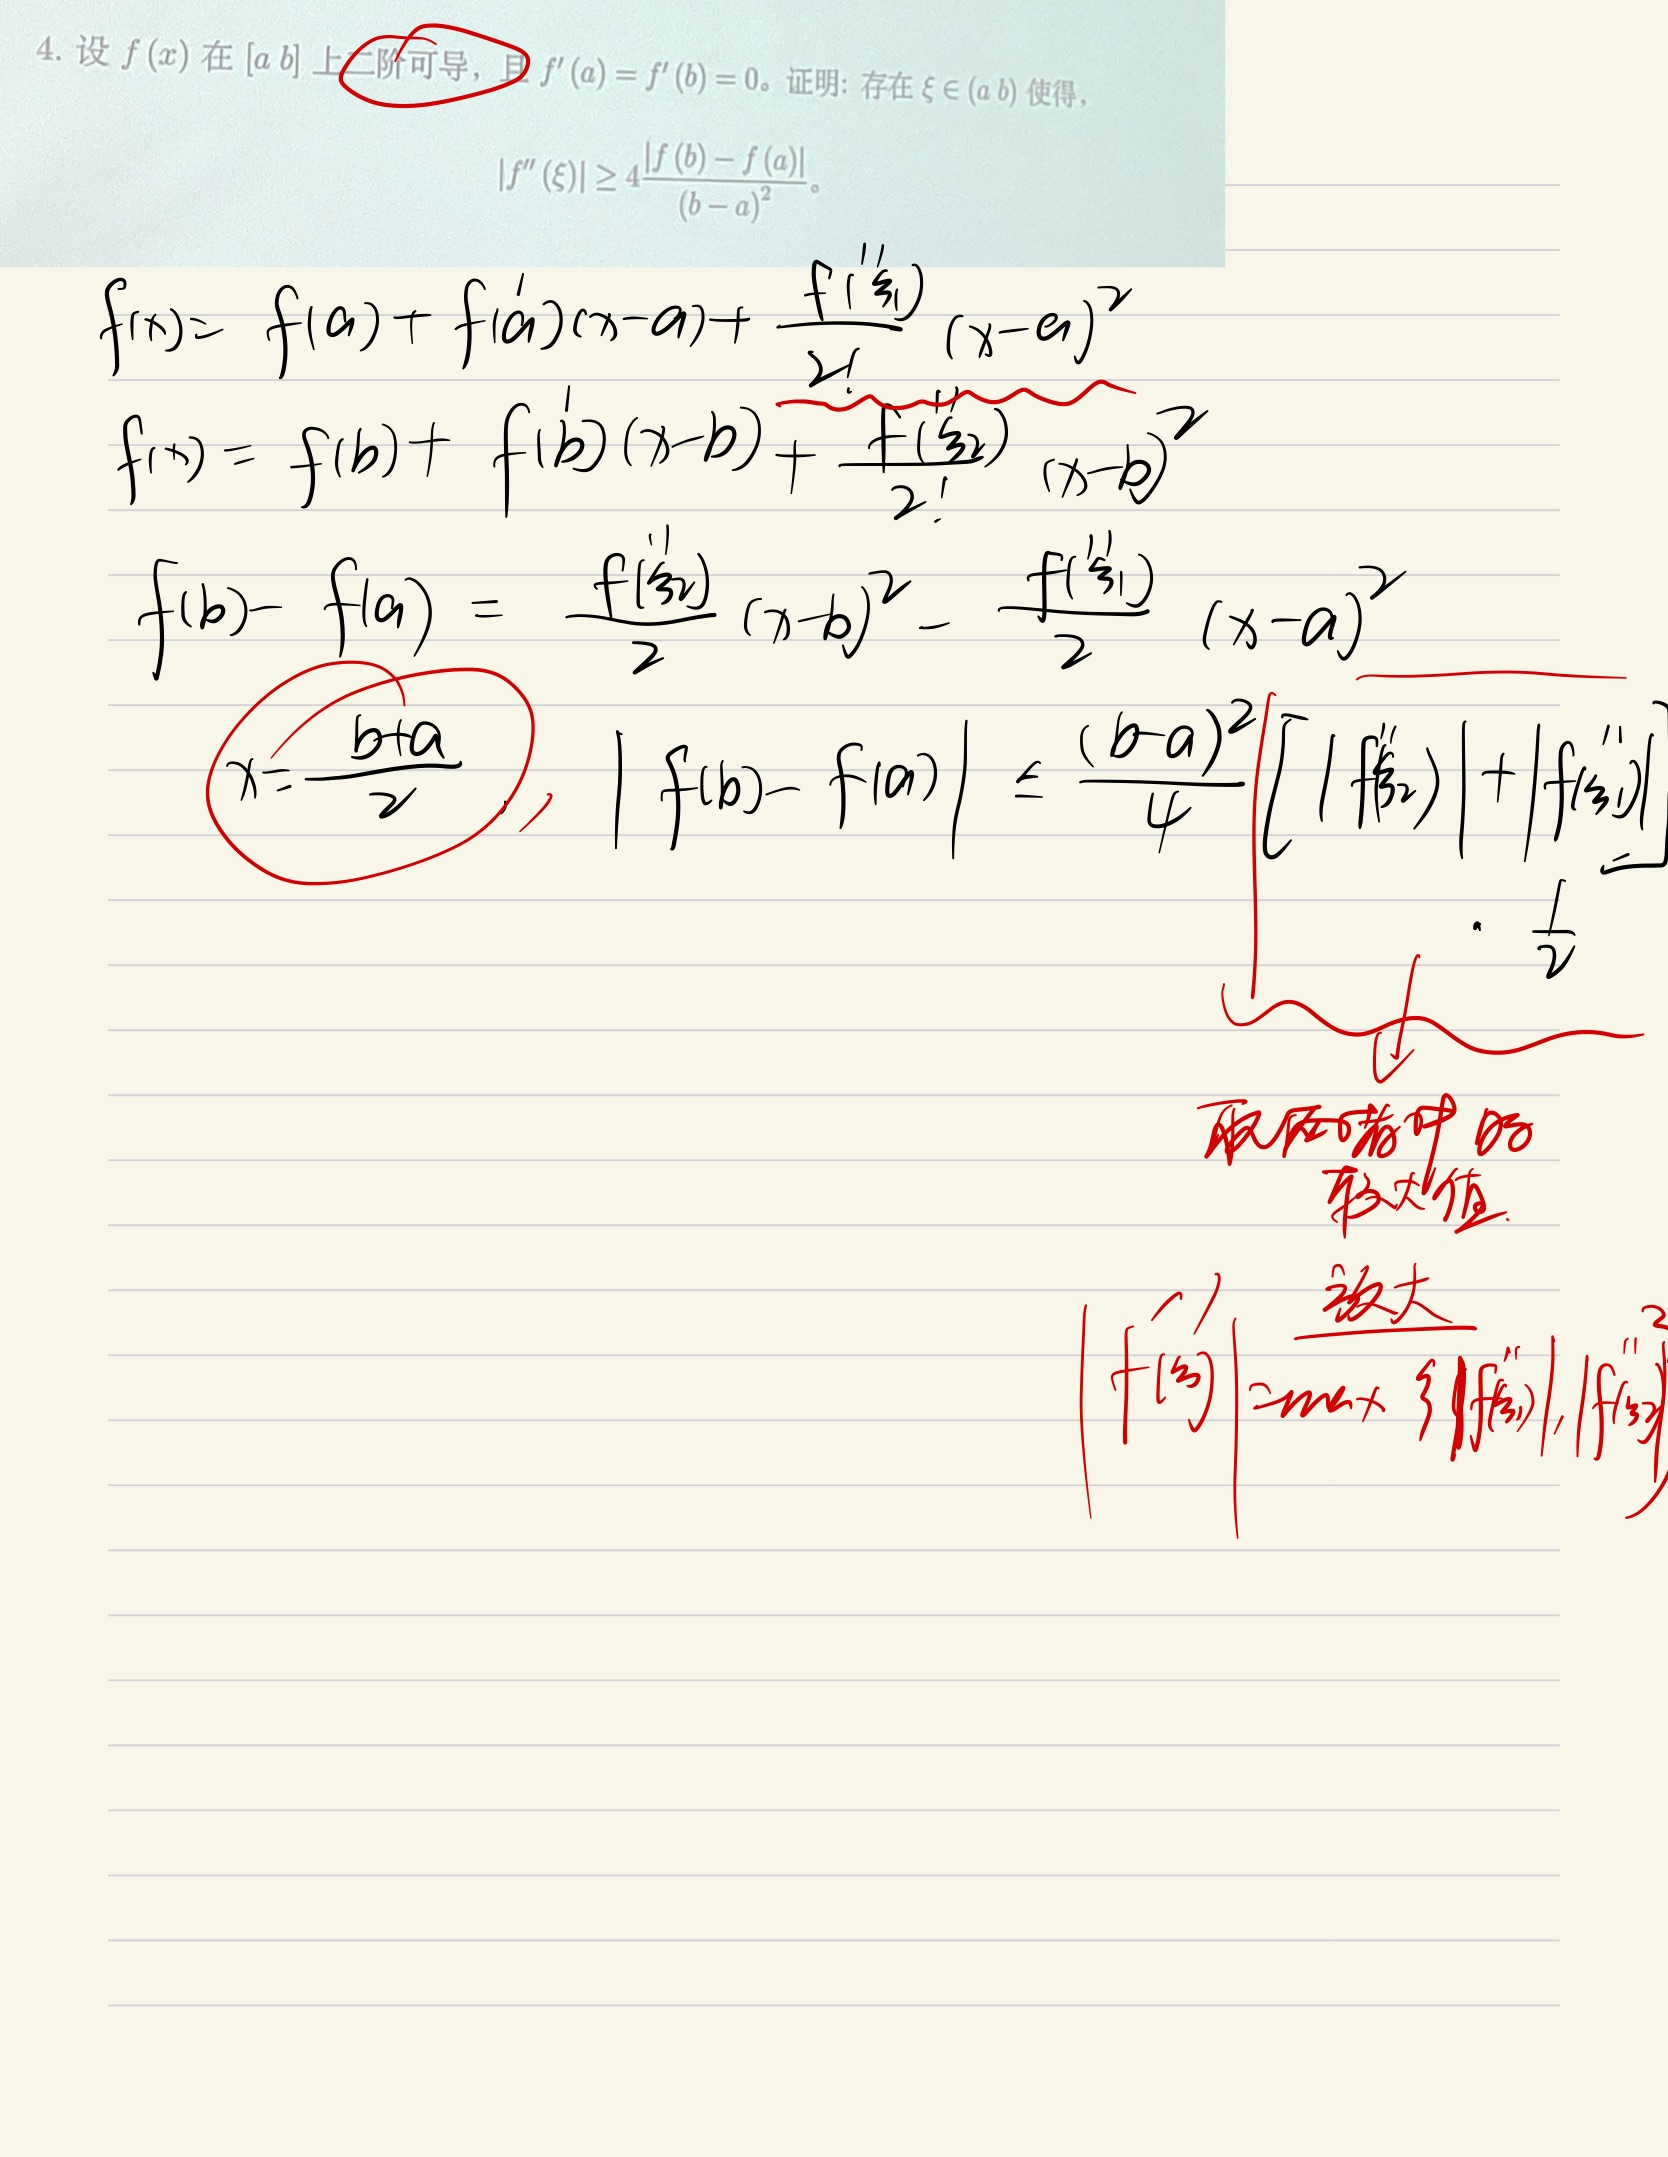 4. 设 f (x) 在 [a b] 上二阶可导，且 f′ (a) = f′ (b) = 0。证明: 存在 ξ ∈ (a b) 使得,
|f″ (ξ)| ≥ 4 |f (b) − f (a)| / (b − a)²。
f(x) = f(a) + f′(a)(x−a) + f″(ξ₁)/2! (x−a)²
f(x) = f(b) + f′(b)(x−b) + f″(ξ₂)/2! (x−b)²
f(b) − f(a) = f″(ξ₂)/2 (x−b)² − f″(ξ₁)/2 (x−a)²
x = b+a/2 , |f(b) − f(a)| ≤ (b−a)²/4 [|f″(ξ₂)| + |f″(ξ₁)|]
· 1/2
取两者中的
较大值.
放大
|f″(ξ)| = max {|f″(ξ₁)|, |f″(ξ₂)|}